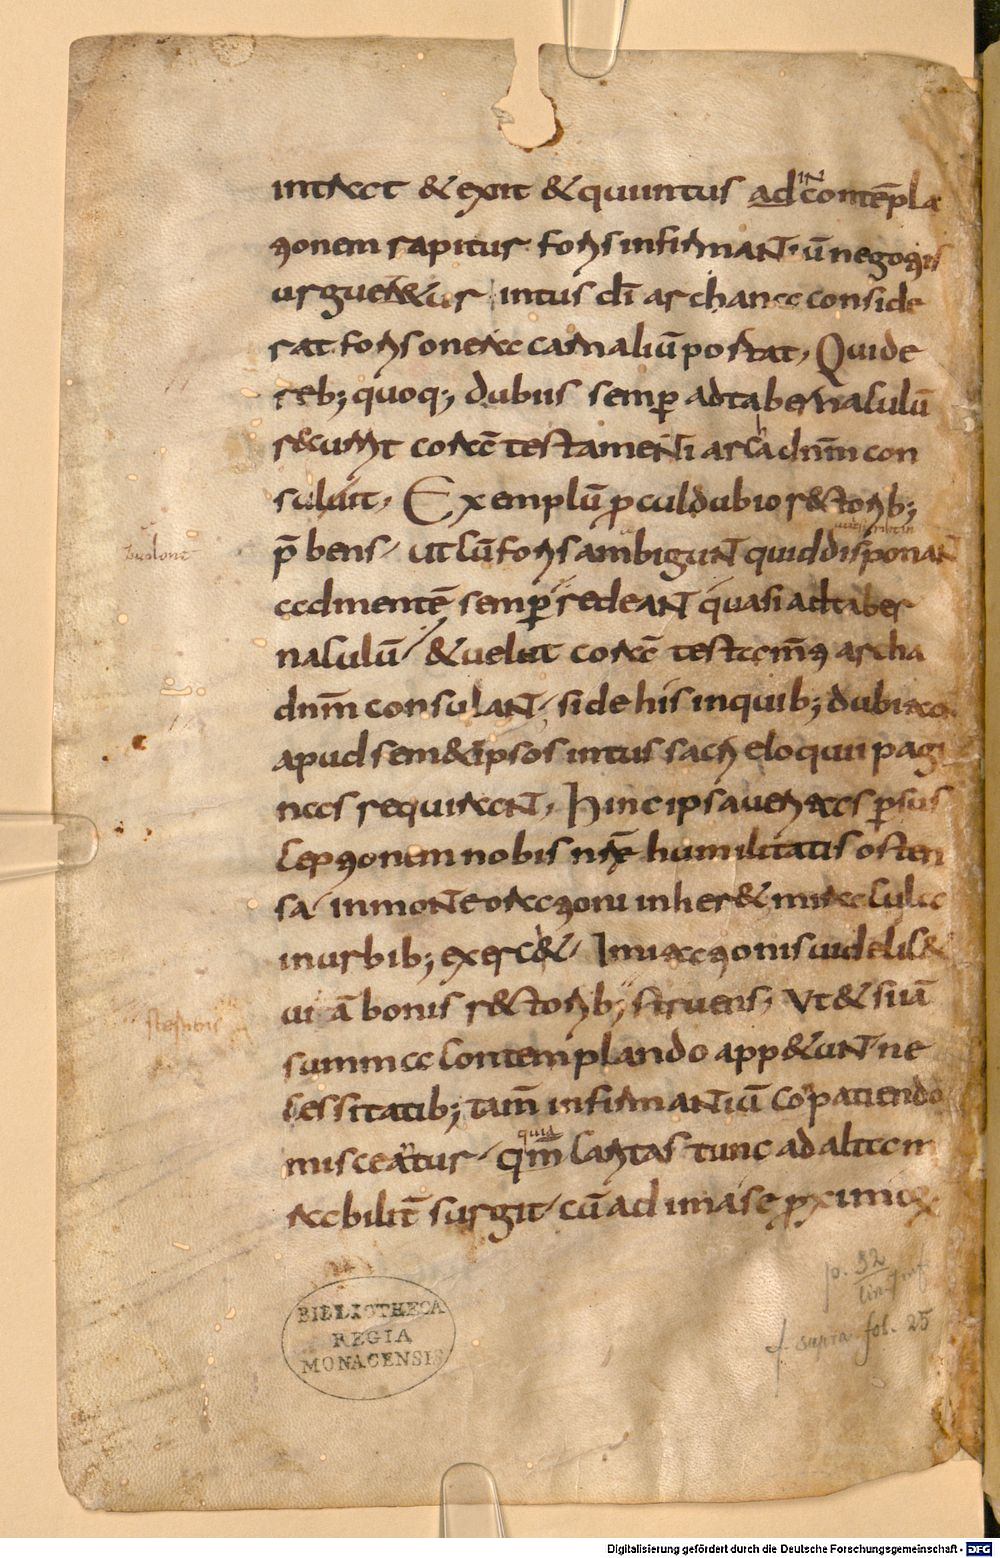 intrat & exit & qui intus ad in contēpla
tionem rapitur foris infirmantiū negotiis
urguetur intus dī archana conside
rat foris onera carnaliū portat, Qui de
reb; quoq; dubiis semp adtabernaculū
recurrit corā testamenti archa dnm con
sulit, Exemplū pculdubio rectorib;
p̄bens, ut cū foris ambigunt quid disponant
ad mentē semp redeant quasi adtaber
naculū, & velut corā testam̄ti archa
dnm consulant, si de his in quib; dubitant
apud sem&ipsos intus sacri eloquii pagi
nas requirant, Hinc ipsa ueritas p sus
ceptionem nobis nr̄ae humilitatis osten
sa in monte orationi inher& miracula
in urbib; exerc&, Imitationis uidelic&
uiā bonis rectorib; struens, Ut & si iā
summa contemplando app&unt ne
cessitatib; tam̄ infirmantiū cōpatiendo
misceantur, qm̄ quia caritas tunc ad alta m
rabilit surgit, cū ad ima se pximiorū
BIBLIOTHECA
REGIA
MONACENSIS
p. 32
f. supra fol. 25
Digitalisierung gefördert durch die Deutsche Forschungsgemeinschaft - DFG